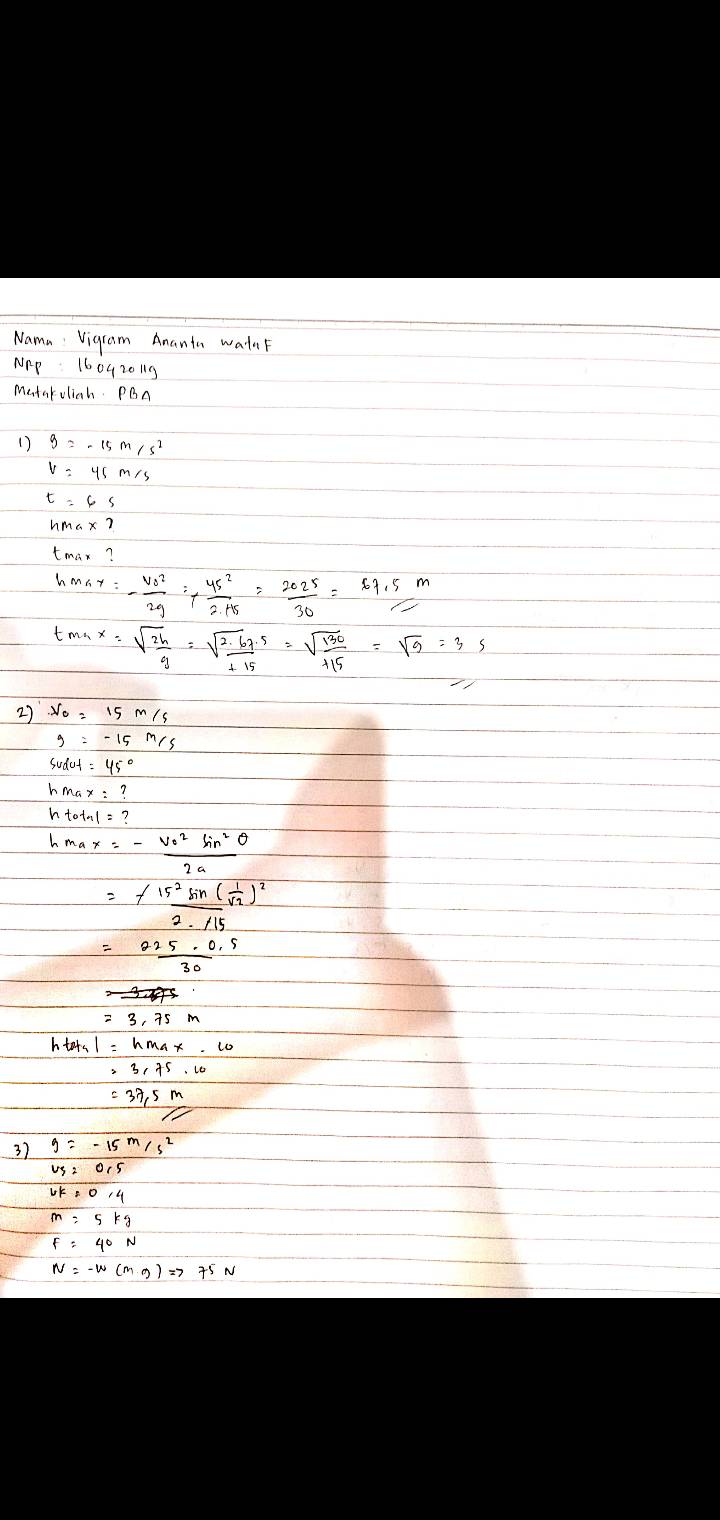 Nama : Vigram Ananta
Nrp : 160420119
Matakuliah : PBA
1) g = -15 m/s²
v = 45 m/s
t = 6 s
hmax ?
tmax ?
hmax = - Vo²/2g = 45²/2.15 = 2025/30 = 67,5 m
tmax = √2h/g = √2.67.5/+15 = √130/+15 = √9 = 3 s
2) Vo = 15 m/s
g = -15 m/s
Sudut = 45°
hmax = ?
h total = ?
hmax = - Vo² sin² θ / 2a
= 15² sin (1/√2)² / 2.15
= 225 . 0,5 / 30
= 3,75 m
h total = hmax . 10
= 3,75 . 10
= 37,5 m
3) g = -15 m/s²
us = 0,5
uk = 0,4
m = 5 kg
F = 40 N
N = -w (m.g) => 75 N